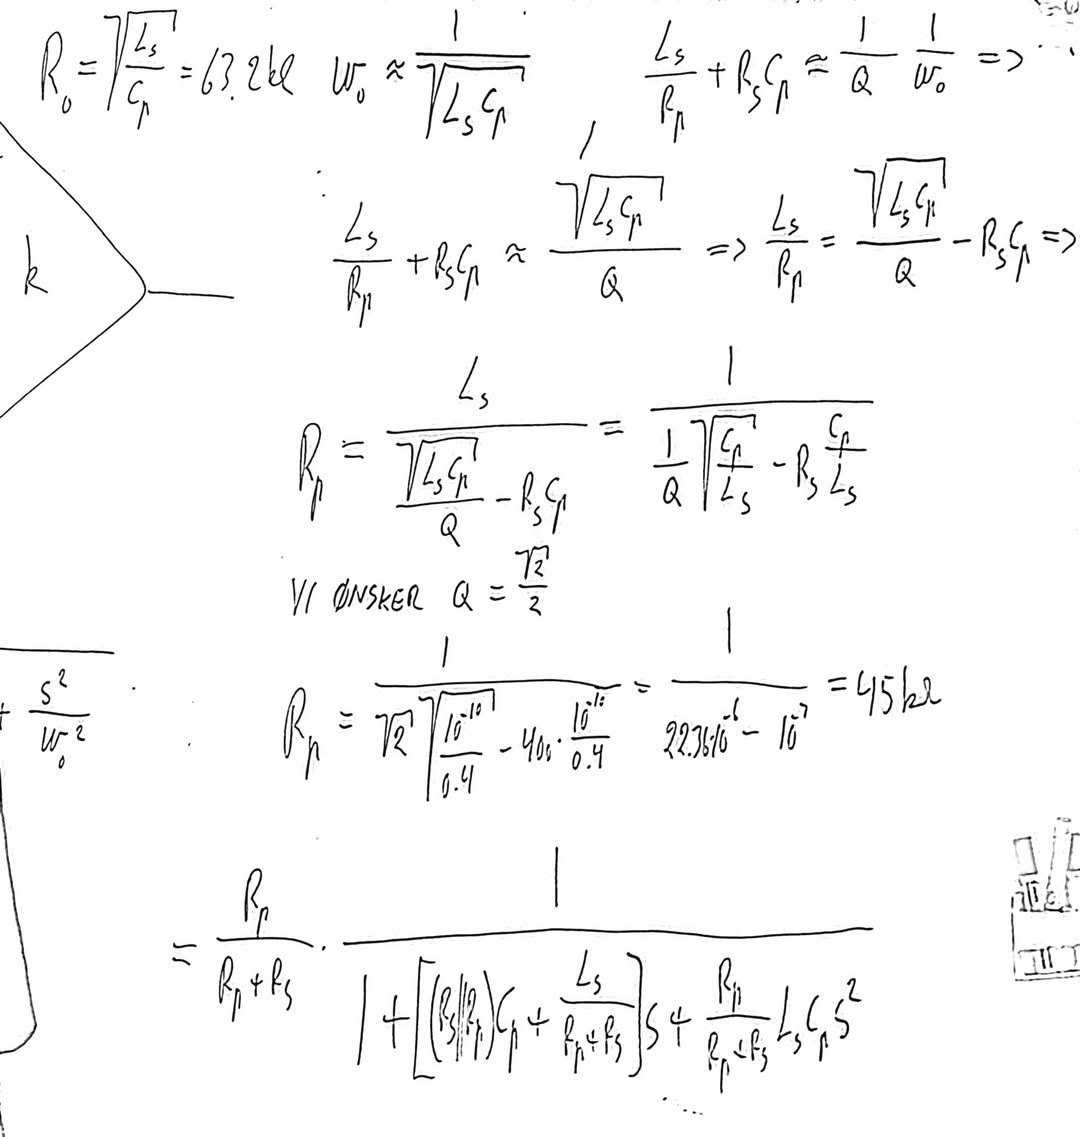 R₀ = √(Lₛ/Cₚ) = 63.2kΩ  w₀ ≈ 1/√(LₛCₚ)  Lₛ/Rₚ + RₛCₚ ≈ 1/Q 1/w₀ =>
Lₛ/Rₚ + RₛCₚ ≈ √(LₛCₚ)/Q => Lₛ/Rₚ = √(LₛCₚ)/Q - RₛCₚ =>
k
Rₚ = Lₛ/(√(LₛCₚ)/Q - RₛCₚ) = 1/(1/Q √(Cₚ/Lₛ) - Rₛ Cₚ/Lₛ)
VI ØNSKER Q = √2/2
+ s²/w₀²
Rₚ = 1/(√2 √(10⁻¹⁰/0.4) - 400·10⁻¹⁰/0.4) = 1/(22.36·10⁻⁶ - 10⁻⁷) = 45kΩ
= Rₚ/(Rₚ+Rₛ) · 1/(1 + [(Rₛ||Rₚ)Cₚ + Lₛ/(Rₚ+Rₛ)]s + Rₚ/(Rₚ+Rₛ) LₛCₚs²)